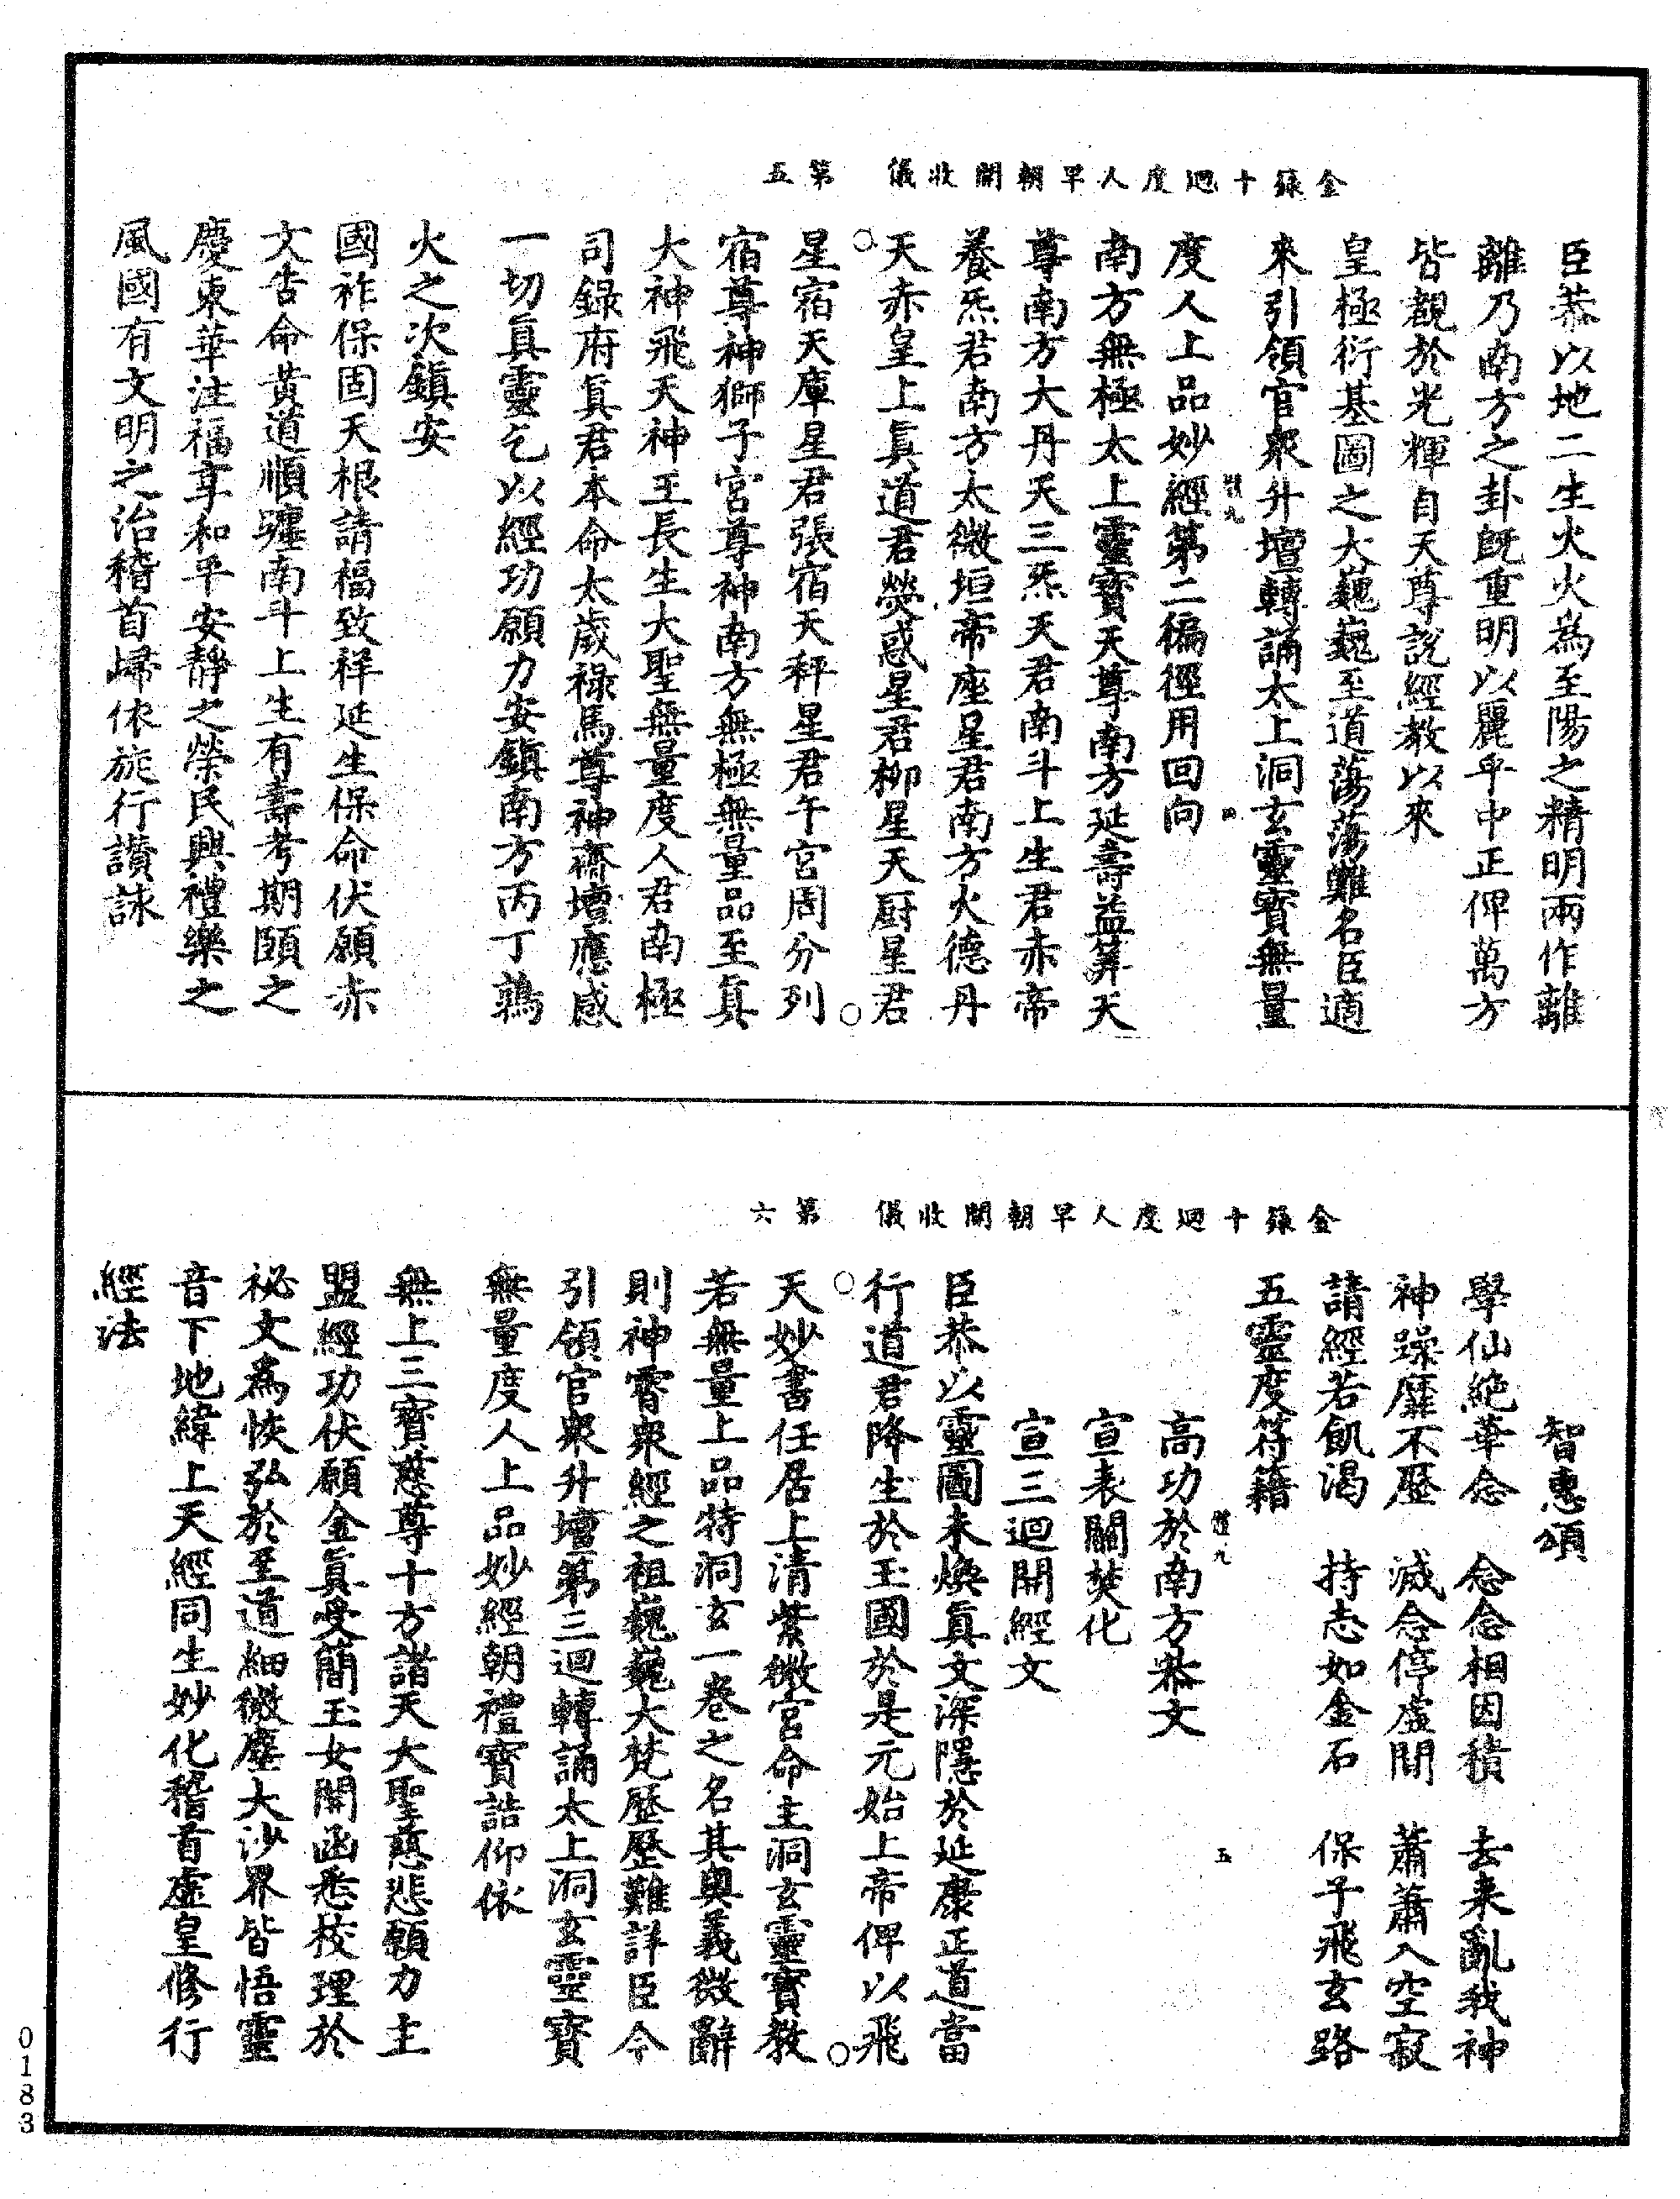 金籙十迴度人早朝開收儀　第五
臣恭以地二生火火為至陽之精明兩作離
離乃南方之卦既重明以麗乎中正俾萬方
皆覩於光輝自天尊說經教以來
皇極衍基圖之大巍巍至道蕩蕩難名臣適
來引領官衆升壇轉誦太上洞玄靈寶無量
度人上品妙經第二徧徑用回向
南方無極太上靈寶天尊南方延壽益筭天
尊南方大丹天三炁天君南斗上生君赤帝
養炁君南方太微垣帝座星君南方火德丹
天赤皇上真道君熒惑星君柳星天厨星君
星宿天庫星君張宿天秤星君午宮周分列
宿尊神獅子宮尊神南方無極無量品至真
大神飛天神王長生大聖無量度人君南極
司錄府真君本命太歲祿馬尊神齋壇應感
一切真靈乞以經功願力安鎮南方丙丁鶉
火之次鎮安
國祚保固天根請福致祥延生保命伏願赤
文告命黃道順躔南斗上生有壽考期頤之
慶東華注福享和平安靜之榮民興禮樂之
風國有文明之治稽首歸依旋行讚詠
金籙十迴度人早朝開收儀　第六
智惠頌
學仙絶華念　念念相因積　去来亂我神
神躁靡不歷　滅念停虛閒　蕭蕭入空寂
請經若飢渴　持志如金石　保子飛玄路
五靈度符籍
高功於南方恭文
宣表關焚化
宣三迴開經文
臣恭以靈圖未煥真文深隱於延康正道當
行道君降生於玉國於是元始上帝俾以飛
天妙書任居上清紫微宮命主洞玄靈寳教
若無量上品特洞玄一卷之名其奧義微辭
則神霄衆經之祖巍巍大梵歷歷難詳臣今
引領官衆升壇第三迴轉誦太上洞玄靈寶
無量度人上品妙經朝禮寶誥仰依
無上三寶慈尊十方諸天大聖慈悲願力主
盟經功伏願金真受簡玉女開函悉校理於
祕文為恢弘於至道細微塵大沙界皆悟靈
音下地緯上天經同生妙化稽首虛皇修行
經法
0183